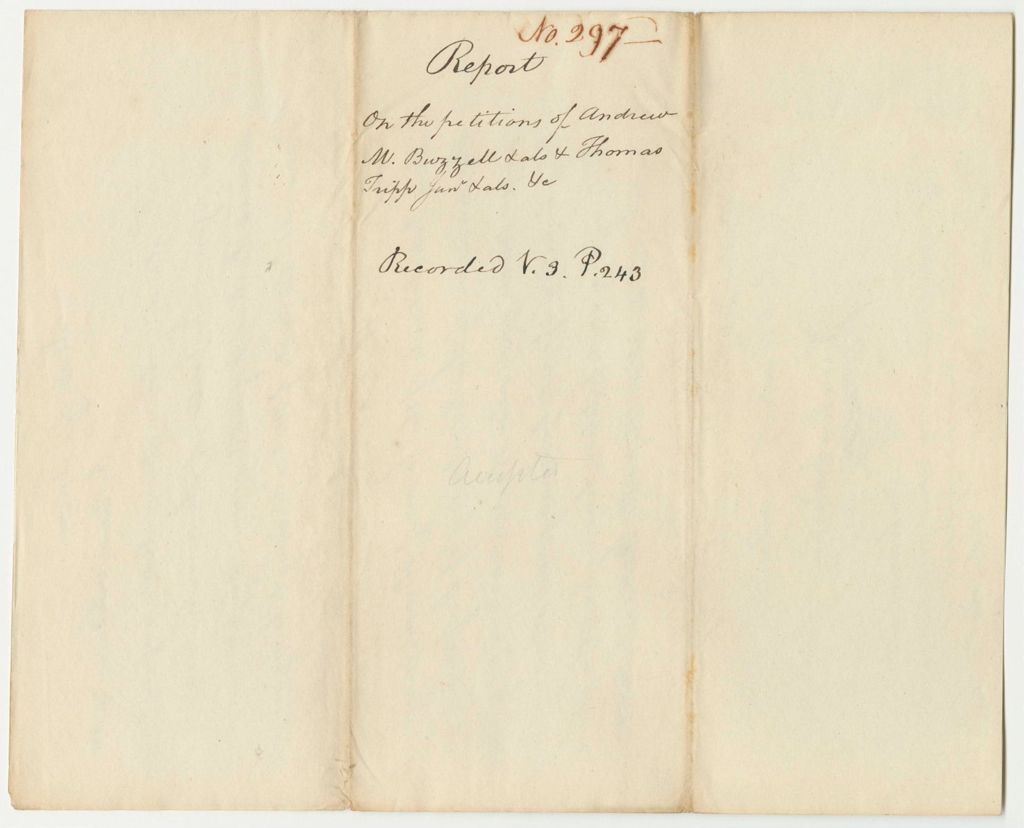 No. 297
Report
On the petitions of Andrew
M. Buzzell & als & Thomas
Tripp Junr & als. &c
Recorded V. 3. P. 243
Accepted